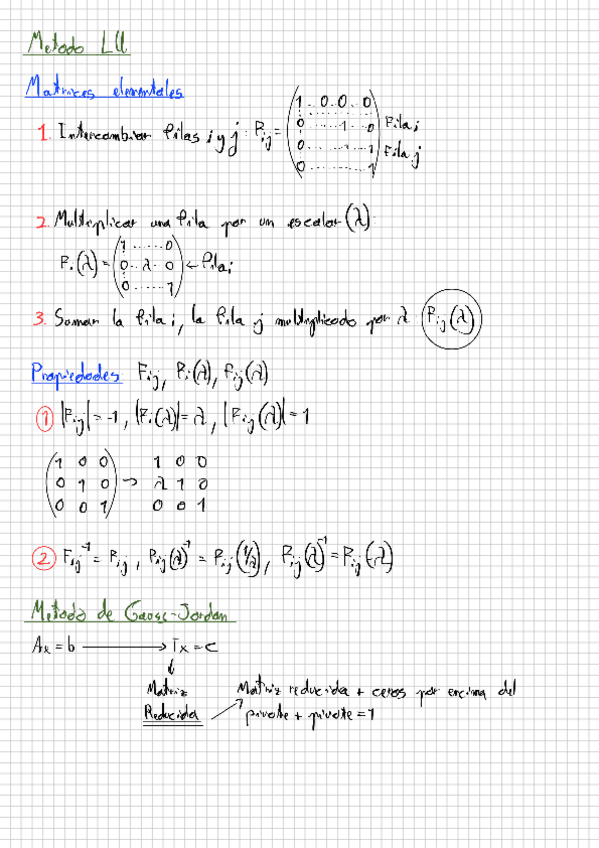 Metodo LU
Matrices elementales
1. Intercambiar filas i y j : P_ij = (1 . . 0 . . 0 . . 0
0 . . . . 1 . . 0 Fila i
0 . . . . . . 1 . . 1 Fila j
0 . . . . . . . 1)
2. Multiplicar una fila por un escalar (λ)
(1 . . . . . . 0
P_i(λ) = 0 . . λ . . 0 ← fila i
0 . . . . . 1)
3. Sumar la fila i, la fila j multiplicado por λ (P_ij(λ))
Propiedades F_ij, P_i(λ), P_ij(λ)
① |P_ij| = -1, |P_i(λ)| = λ, |P_ij(λ)| = 1
(1 0 0 1 0 0
0 1 0 → λ 1 0
0 0 1) 0 0 1
② F_ij^-1 = P_ij, P_ij(λ)^-1 = P_ij(1/λ), P_ij(λ)^-1 = P_ij(-λ)
Metodo de Gauss-Jordan
Ax = b → Tx = c
↓
Matriz Matriz reducida + ceros por encima del
Reducida pivote + pivote = 1